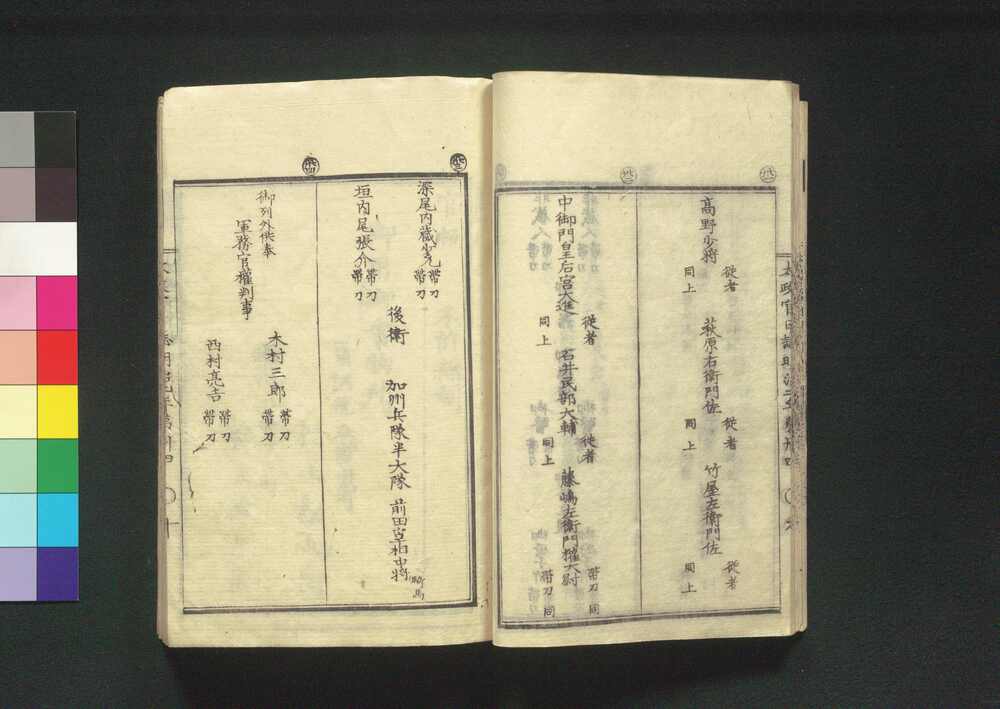 高野少將 從者 同上 萩原右衛門佐 從者 同上 竹屋左衛門佐 從者 同上
中御門皇后宮大進 從者 同上 石井民部大輔 從者 同上 藤嶋左衛門權大尉 帶刀 同
深尾内藏 帶刀 帶刀
後衛 加州兵隊半大隊 前田宰相中將 騎馬
垣内尾張介 帶刀 帶刀
御列外供奉
軍務官權判事
木村三郎 帶刀 帶刀
西村亮吉 帶刀 帶刀